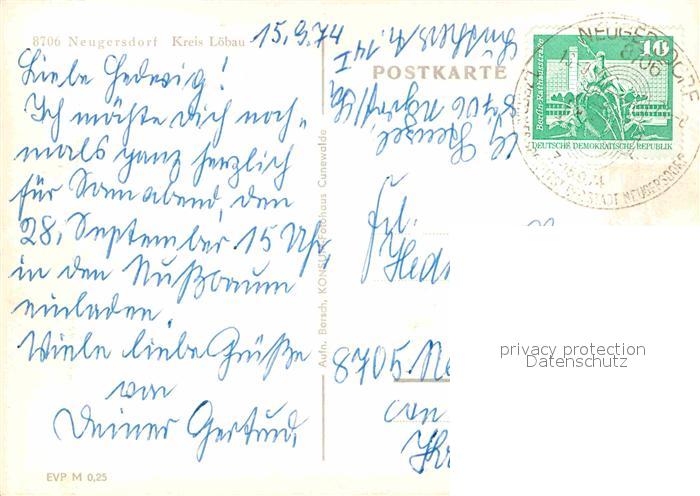 8706 Neugersdorf Kreis Löbau
15.9.74
Liebe Hedwig!
Ich möchte Dich noch-
mals ganz herzlich
für Sonnabend, den
28. September 15 Uhr,
in den Nußbaum
einladen.
Viele liebe Grüße
von
Deiner Gertrud.
EVP M 0,25
Aufn. Bersch, KONSUM-Fotohaus Cunewalde
POSTKARTE
8706
14 I
Frl.
Hed
8705 Ne
10
Berlin-Rathausstraße
DEUTSCHE DEMOKRATISCHE REPUBLIK
NEUGERSDORF
8706
STADT NEUGERSDORF
privacy protection
Datenschutz